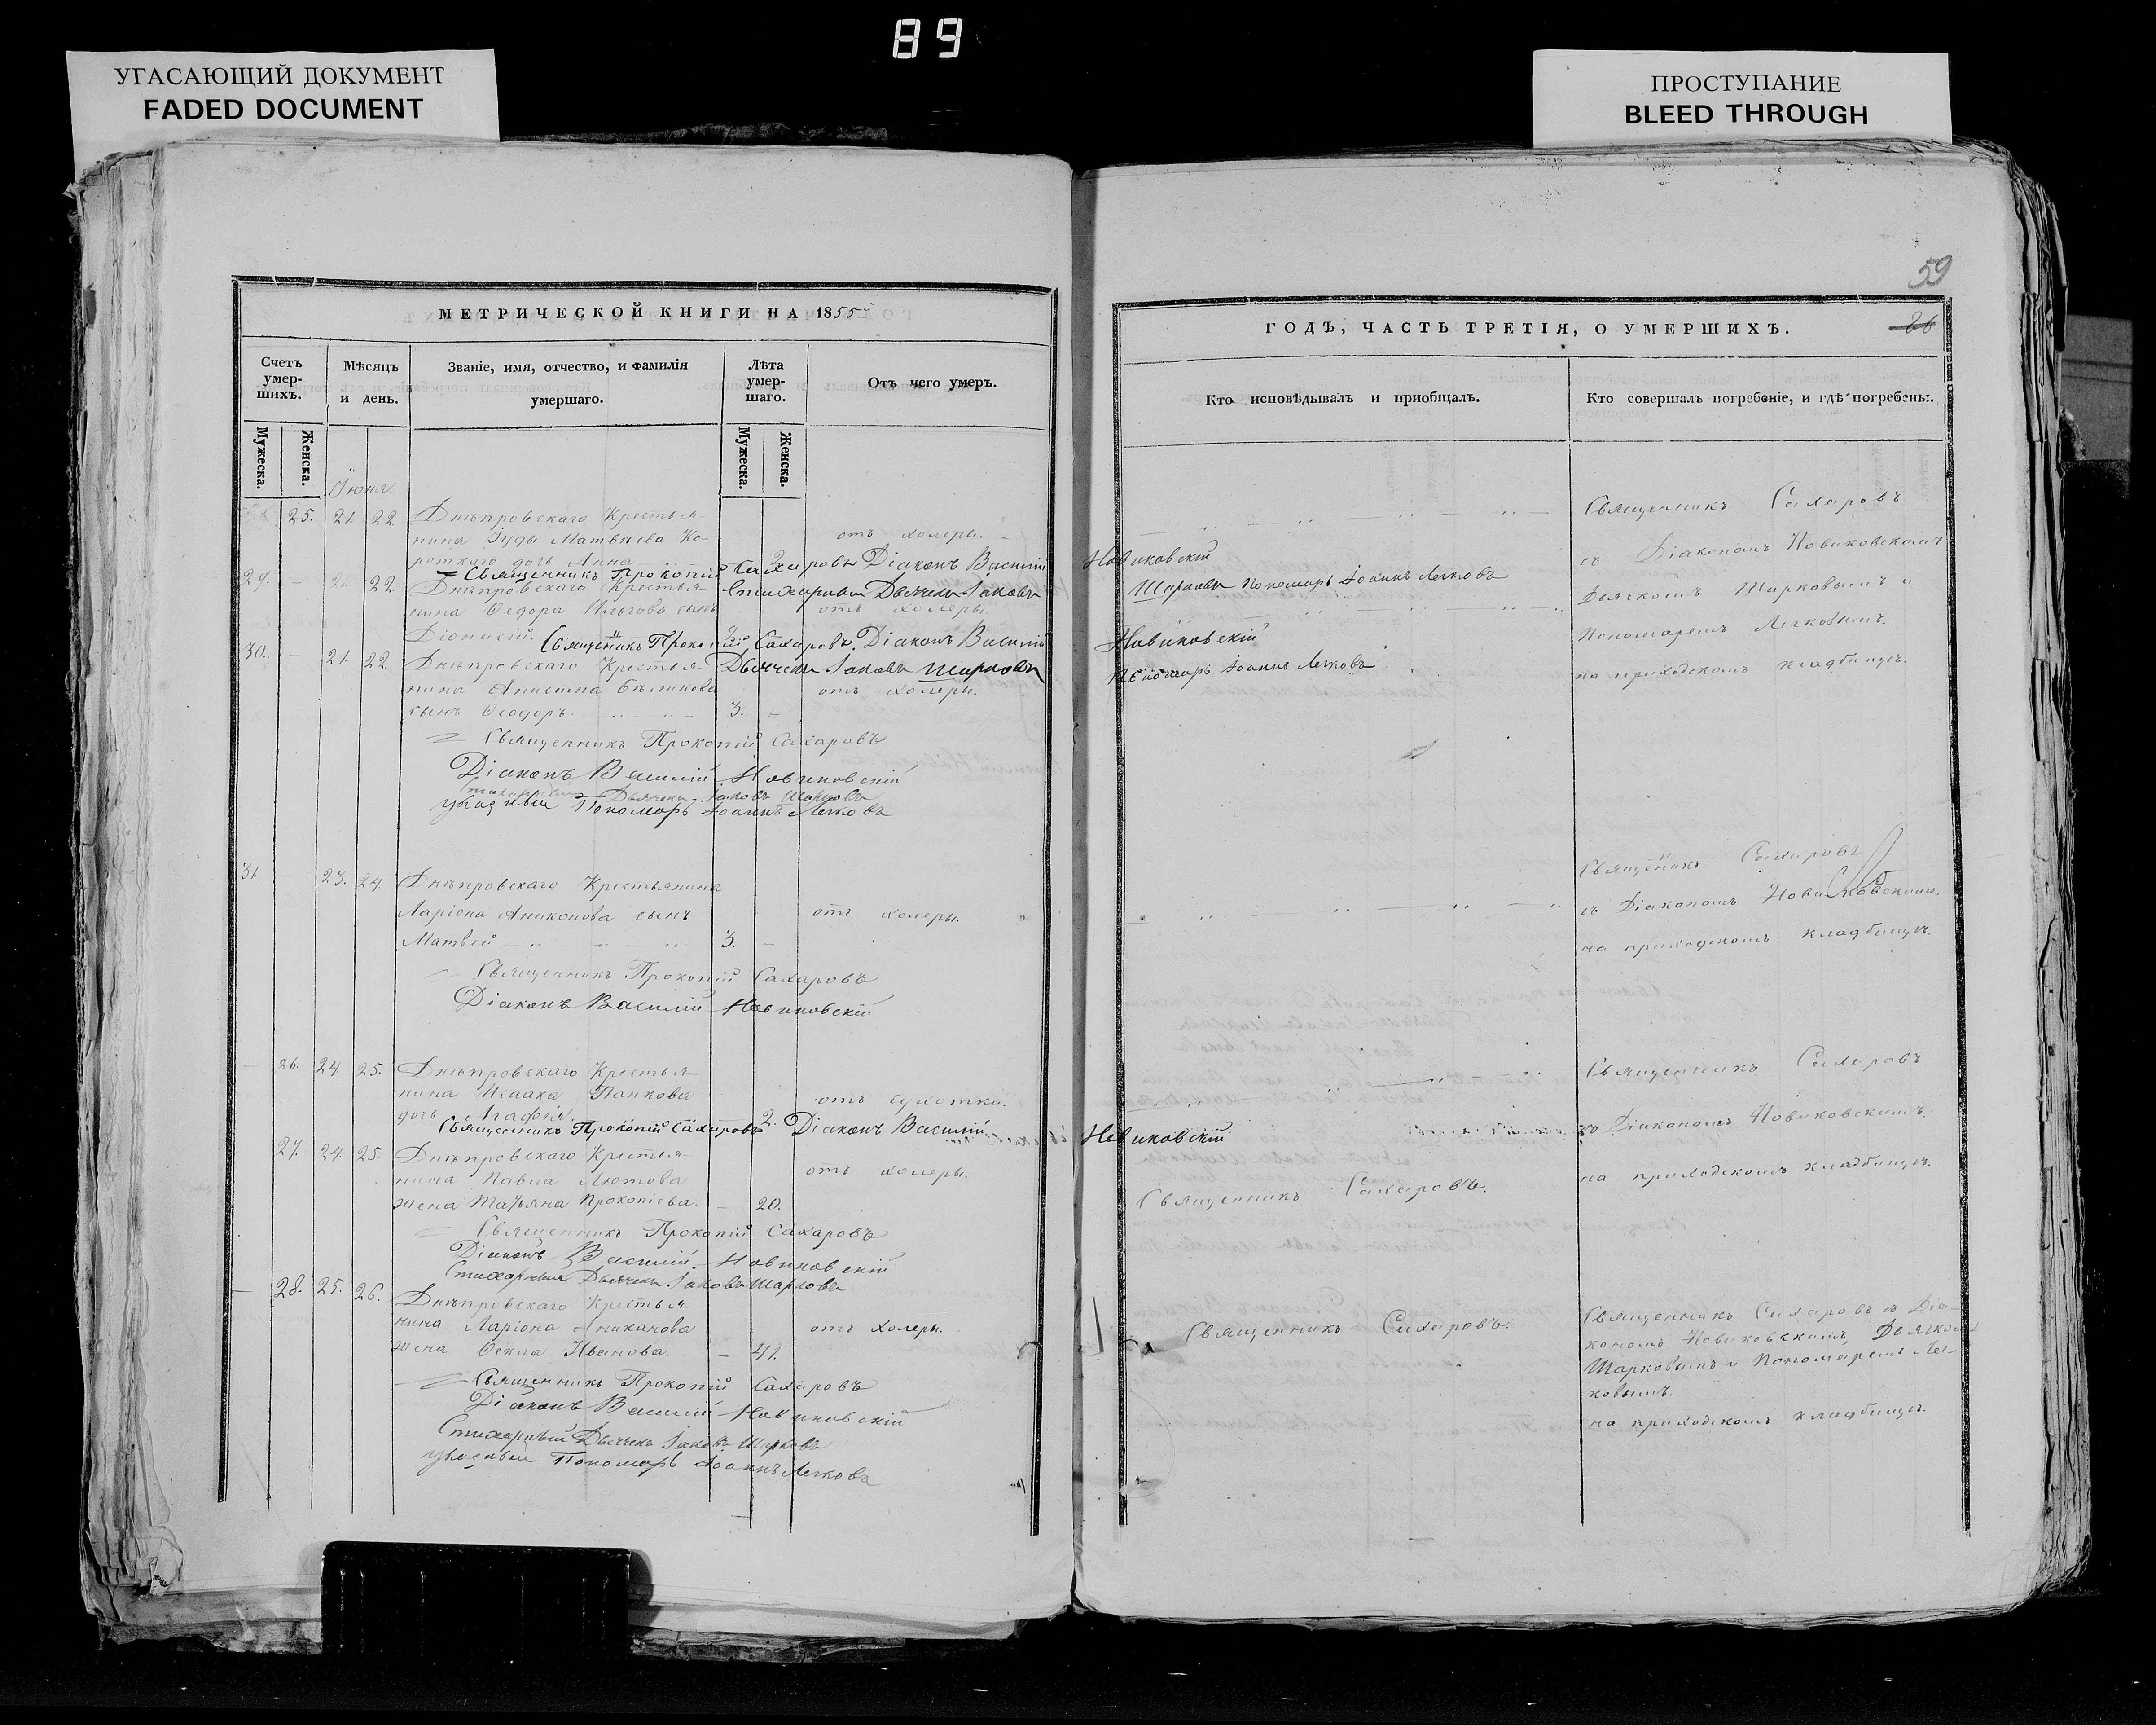 89
УГАСАЮЩИЙ ДОКУМЕНТ
FADED DOCUMENT
ПРОСТУПАНИЕ
BLEED THROUGH
МЕТРИЧЕСКОЙ КНИГИ НА 1855
Счетъ умер-шихъ.
Мѣсяцъ и день.
Званіе, имя, отчество, и фамилія умершаго.
Лѣта умер-шаго.
Отъ чего умеръ.
Мужеска.
Женска.
Мужеска.
Женска.
Іюня.
25. 21. 22. Днѣпровскаго Крестья-
нина Іуды Матвѣева Ко-
роткаго дочь Анна
отъ холеры.
Священникъ Прокопій Сахаровъ Діаконъ Василій Новиковскій
Стихарный Дьячекъ Іаковъ Шарковъ Пономарь Іоаннъ Легковъ
29. – 21. 22. Днѣпровскаго Крестья-
нина Ѳедора сынъ
Діонисій.
отъ холеры
Священникъ Прокопій Сахаровъ. Діаконъ Василій Новиковскій
Дьячекъ Іаковъ Шарковъ Пономарь Іоаннъ Легковъ
30. – 21. 22. Днѣпровскаго Крестья-
нина Анисима Бѣликова
сынъ Ѳеодоръ 3. –
отъ холеры.
Священникъ Прокопій Сахаровъ
Діаконъ Василій Новиковскій
Стихарный Дьячекъ Іаковъ Шарковъ
Пономарь Іоаннъ Легковъ
31. – 23. 24. Днѣпровскаго Крестьянина
Ларіона Аниканова сынъ
Матвѣй 3. –
отъ холеры.
Священникъ Прокопій Сахаровъ
Діаконъ Василій Новиковскій
– 26. 24. 25. Днѣпровскаго Крестья-
нина Исаака Панкова
дочь Агафія. 2.
отъ сухотки.
Священникъ Прокопій Сахаровъ Діаконъ Василій Новиковскій
27. 24. 25. Днѣпровскаго Крестья-
нина Павла Лютова
жена Татьяна Прокопіева. – 20.
отъ холеры.
Священникъ Прокопій Сахаровъ
Діаконъ Василій Новиковскій
Стихарный Дьячекъ Іаковъ Шарковъ
– 28. 25. 26. Днѣпровскаго Крестья-
нина Ларіона Аниканова
жена Ѳекла Иванова. – 41.
отъ холеры.
Священникъ Прокопій Сахаровъ
Діаконъ Василій Новиковскій
Стихарный Дьячекъ Іаковъ Шарковъ
Пономарь Іоаннъ Легковъ
59
ГОДЪ, ЧАСТЬ ТРЕТІЯ, О УМЕРШИХЪ.
26
Кто исповѣдывалъ и пріобщалъ.
Кто совершалъ погребеніе, и гдѣ погребены.
Священникъ Сахаровъ
съ Діакономъ Новиковскимъ
Дьячкомъ Шарковымъ и
Пономаремъ Легковымъ.
на приходскомъ кладбищѣ.
Священникъ Сахаровъ
съ Діакономъ Новиковскимъ.
на приходскомъ кладбищѣ.
Священникъ Сахаровъ
съ Діакономъ Новиковскимъ.
на приходскомъ кладбищѣ.
Священникъ Сахаровъ.
Священникъ Сахаровъ.
Священникъ Сахаровъ съ Діа-
кономъ Новиковскимъ, Дьячкомъ
Шарковымъ и Пономаремъ Лег-
ковымъ.
на приходскомъ кладбищѣ.